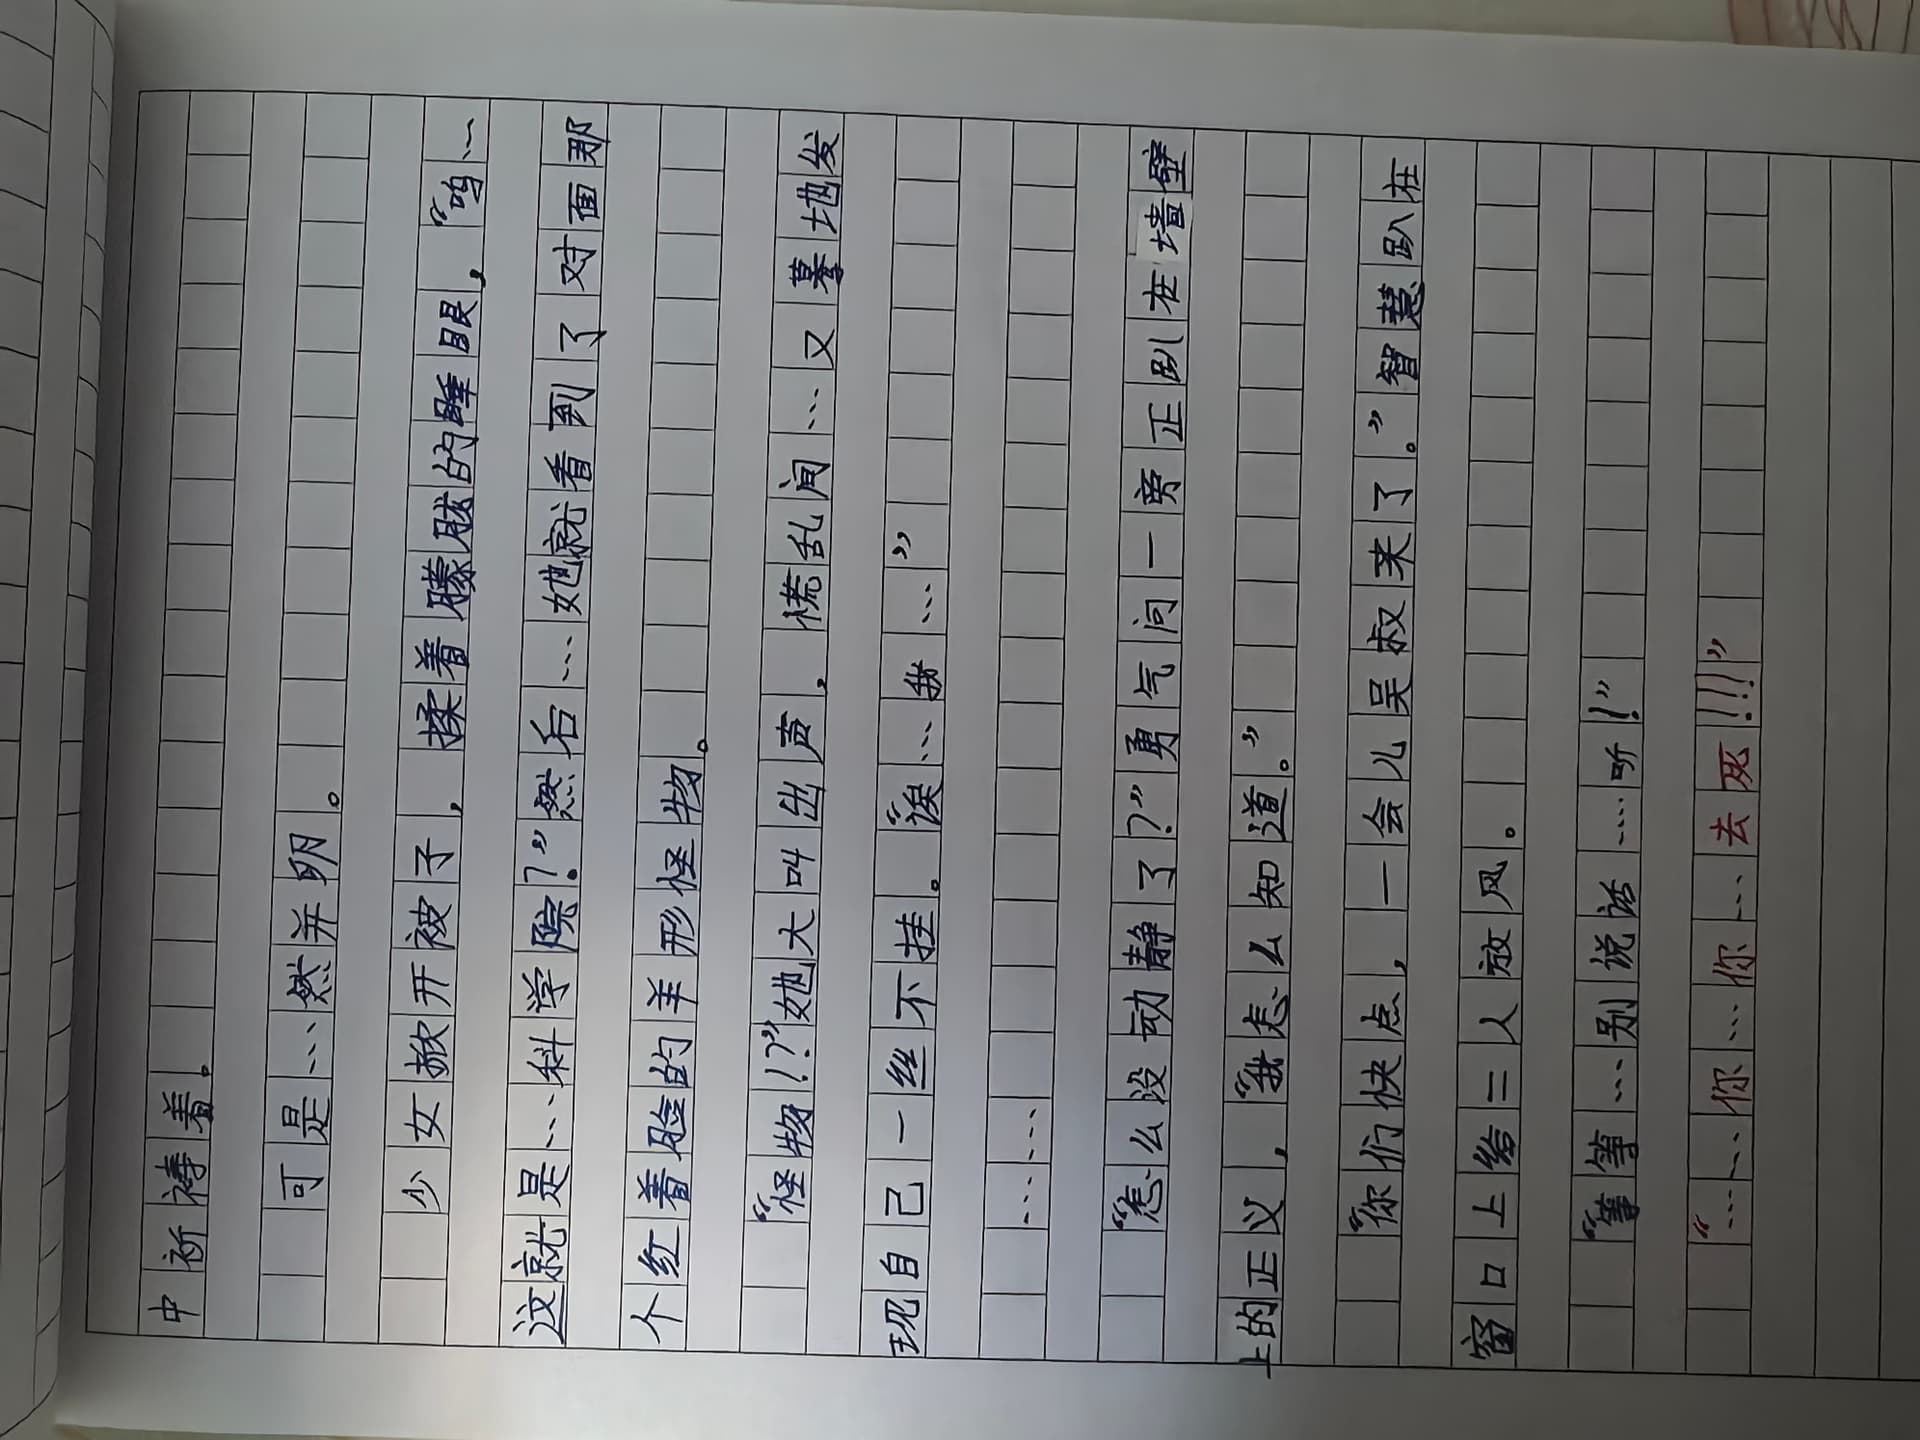 中祈祷着。
可是…然并卵。
少女掀开被子，揉着朦胧的睡眼，“呜…
这就是…科学院？”然后…她就看到了对面那
个红着脸的羊形怪物。
“怪物!？”她大叫出声，慌乱间…又蓦地发
现自己一丝不挂。“诶…我…”
……
“怎么没动静了？”勇气问一旁正趴在墙壁
上的正义，“我怎么知道。”
“你们快点，一会儿吴叔来了。”智慧趴在
窗口上给二人放风。
“等等…别说话…听！”
“……你…你…去死!!!”